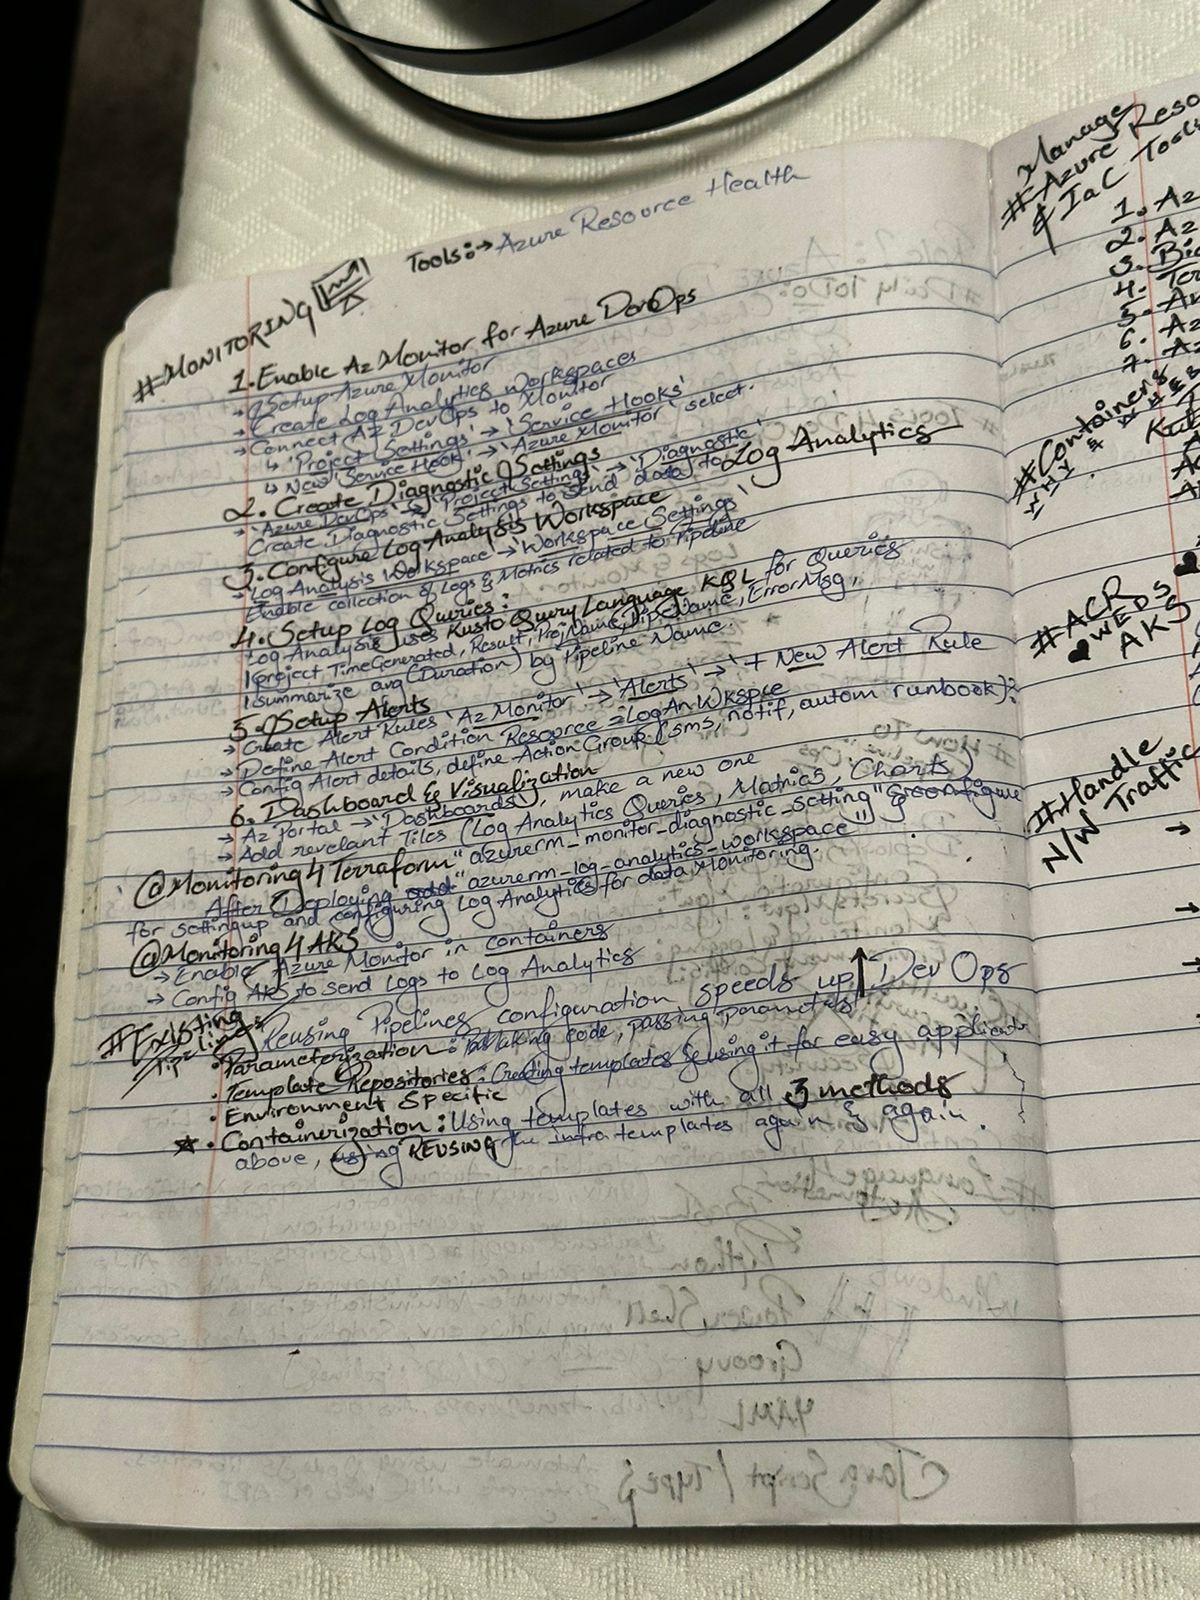 Tools:→ Azure Resource Health
#MONITORING
1. Enable Az Monitor for Azure DevOps
→ Setup Azure Monitor
→ Create Log Analytics workspaces
→ Connect Az DevOps to Monitor
↳ 'Project Settings' → 'Service Hooks'
↳ New 'Service Hook' → 'Azure Monitor' select.
2. Create Diagnostic Settings
'Azure DevOps' → 'Project Settings' → 'Diagnostic'
Create Diagnostic Settings to send data to Log Analytics
3. Configure Log Analysis Workspace
'Log Analysis Workspace' → 'Workspace Settings'
Enable collection of Logs & Metrics related to Pipeline
4. Setup Log Queries:
Log Analysis uses Kusto Query Language KQL for Queries
|project TimeGenerated, Result, ProjName, PipeName, ErrorMsg,
|summarize avg(Duration) by Pipeline Name.
5. Setup Alerts
→ Create Alert Rules 'Az Monitor' → 'Alerts' → '+ New Alert Rule
→ Define Alert Condition Resource = LogAn Wkspce
→ Config Alert details, define Action Group {sms, notif, autom runbook}?
6. Dashboard & Visualization
→ Az Portal → 'Dashboards', make a new one
→ Add revelant Tiles (Log Analytics Queries, Matrics, Charts)
@Monitoring 4 Terraform "azurerm_monitor_diagnostic_setting" & configure
After Deploying add "azurerm_log_analytics_workspace"
for settingup and configuring Log Analytics for data Monitoring.
@Monitoring 4 AKS
→ Enable Azure Monitor in containers
→ Config AKS to send Logs to Log Analytics
#Existing
Pipelines Reusing Pipelines configuration speeds up ↑ Dev Ops
• Parameterization: Making code, passing parametrs
• Template Repositories: Creating templates & using it for easy applicatn
• Environment Specific
★ • Containerization: Using templates with all 3 methods
above, using REUSING the infra templates again & again.
Manage
#Azure Reso
& IaC Tools
1. Az
2. Az
3. Bic
4. Ter
5. An
6. Az
7. Az
#Containers
Ku
#ACR
AKS
#Handle
N/W Traffic
→
→
→